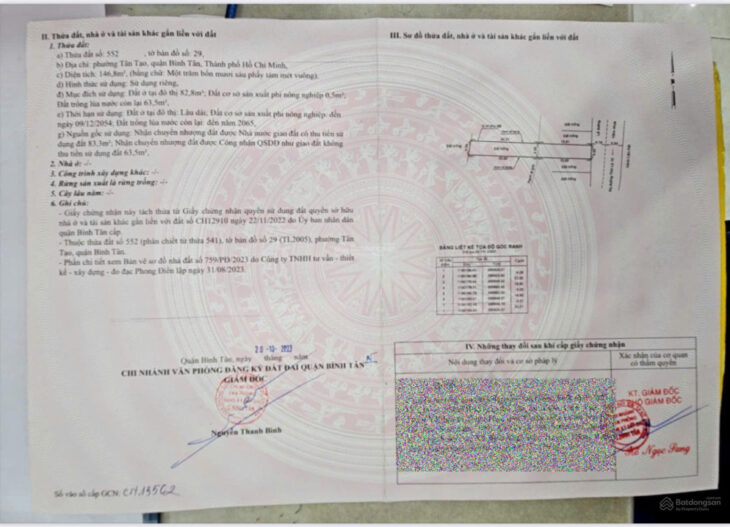 II. Thửa đất, nhà ở và tài sản khác gắn liền với đất
1. Thửa đất:
a) Thửa đất số: 552 , tờ bản đồ số: 29,
b) Địa chỉ: phường Tân Tạo, quận Bình Tân, Thành phố Hồ Chí Minh,
c) Diện tích: 146,8m², (bằng chữ: Một trăm bốn mươi sáu phẩy tám mét vuông),
d) Hình thức sử dụng: Sử dụng riêng,
đ) Mục đích sử dụng: Đất ở tại đô thị 82,8m², Đất cơ sở sản xuất phi nông nghiệp 0,5m²,
Đất trồng lúa nước còn lại 63,5m²,
e) Thời hạn sử dụng: Đất ở tại đô thị: Lâu dài; Đất cơ sở sản xuất phi nông nghiệp: đến
ngày 09/12/2054; Đất trồng lúa nước còn lại: đến năm 2065,
g) Nguồn gốc sử dụng: Nhận chuyển nhượng đất được Nhà nước giao đất có thu tiền sử
dụng đất 83,3m²; Nhận chuyển nhượng đất được Công nhận QSDĐ như giao đất không
thu tiền sử dụng đất 63,5m².
2. Nhà ở: -/-
3. Công trình xây dựng khác: -/-
4. Rừng sản xuất là rừng trồng: -/-
5. Cây lâu năm: -/-
6. Ghi chú:
- Giấy chứng nhận này tách thửa từ Giấy chứng nhận quyền sử dụng đất quyền sở hữu
nhà ở và tài sản khác gắn liền với đất số CH12910 ngày 22/11/2022 do Ủy ban nhân dân
quận Bình Tân cấp.
- Thuộc thửa đất số 552 (phân chiết từ thửa 541), tờ bản đồ số 29 (TL2005), phường Tân
Tạo, quận Bình Tân.
- Phần chi tiết xem Bản vẽ sơ đồ nhà đất số 759/PĐ/2023 do Công ty TNHH tư vấn - thiết
kế - xây dựng - đo đạc Phong Điền lập ngày 31/08/2023.
20-10-2023
Quận Bình Tân, ngày tháng năm
CHI NHÁNH VĂN PHÒNG ĐĂNG KÝ ĐẤT ĐAI QUẬN BÌNH TÂN
GIÁM ĐỐC
Nguyễn Thanh Bình
Số vào sổ cấp GCN: CH13562
III. Sơ đồ thửa đất, nhà ở và tài sản khác gắn liền với đất
BẢNG LIỆT KÊ TỌA ĐỘ GÓC RANH
IV. Những thay đổi sau khi cấp giấy chứng nhận
Nội dung thay đổi và cơ sở pháp lý
Xác nhận của cơ quan
có thẩm quyền
KT. GIÁM ĐỐC
PHÓ GIÁM ĐỐC
Batdongsan
by PropertyGuru